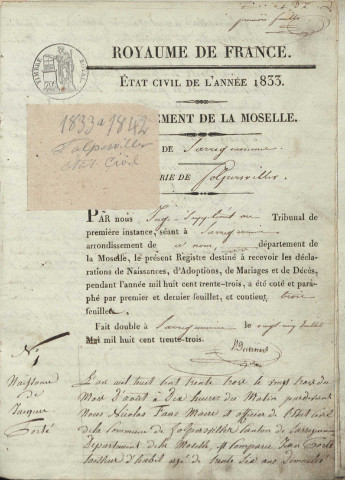 première feuille
TIMBRE ROYAL
ROYAUME DE FRANCE.
ÉTAT CIVIL DE L'ANNÉE 1833.
1833 à 1842
Folpersviller
état Civil
EMENT DE LA MOSELLE.
DE Sarreguemines
RIE DE Folpersviller
PAR nous Juge Suppléant au Tribunal de
première instance, séant à Sarreguemines
arrondissement de ce nom, département de
la Moselle, le présent Registre destiné à recevoir les déclarations
de Naissances, d'Adoptions, de Mariages et de Décès,
pendant l'année mil huit cent trente-trois, a été coté et paraphé
par premier et dernier feuillet, et contient trois
feuillets.
Fait double à Sarreguemines le vingt cinq
Mai mil huit cent trente-trois.
N° 1
Naissance
de
Jacques
L'an mil huit cent trente trois le vingt trois du
Mois d'août à Dix heures du Matin pardevant
Nous Nicolas Maire et officier de l'état civil
de la Commune de Folpersviller Canton de Sarreguemines
Département de la Moselle, est comparu Jean
âgé de trente six ans